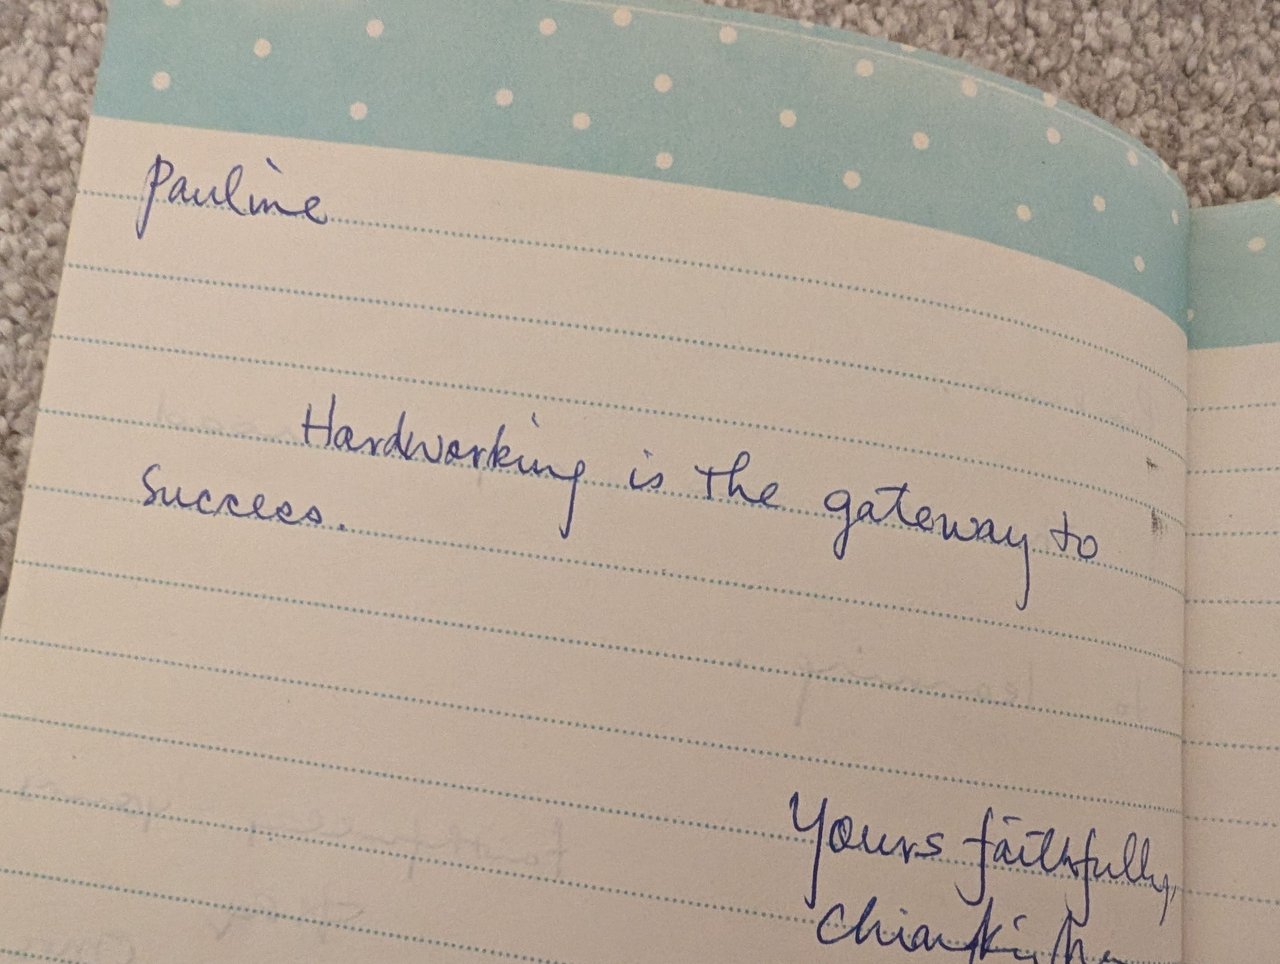 Pauline
Hardworking is the gateway to
success.
Yours faithfully,